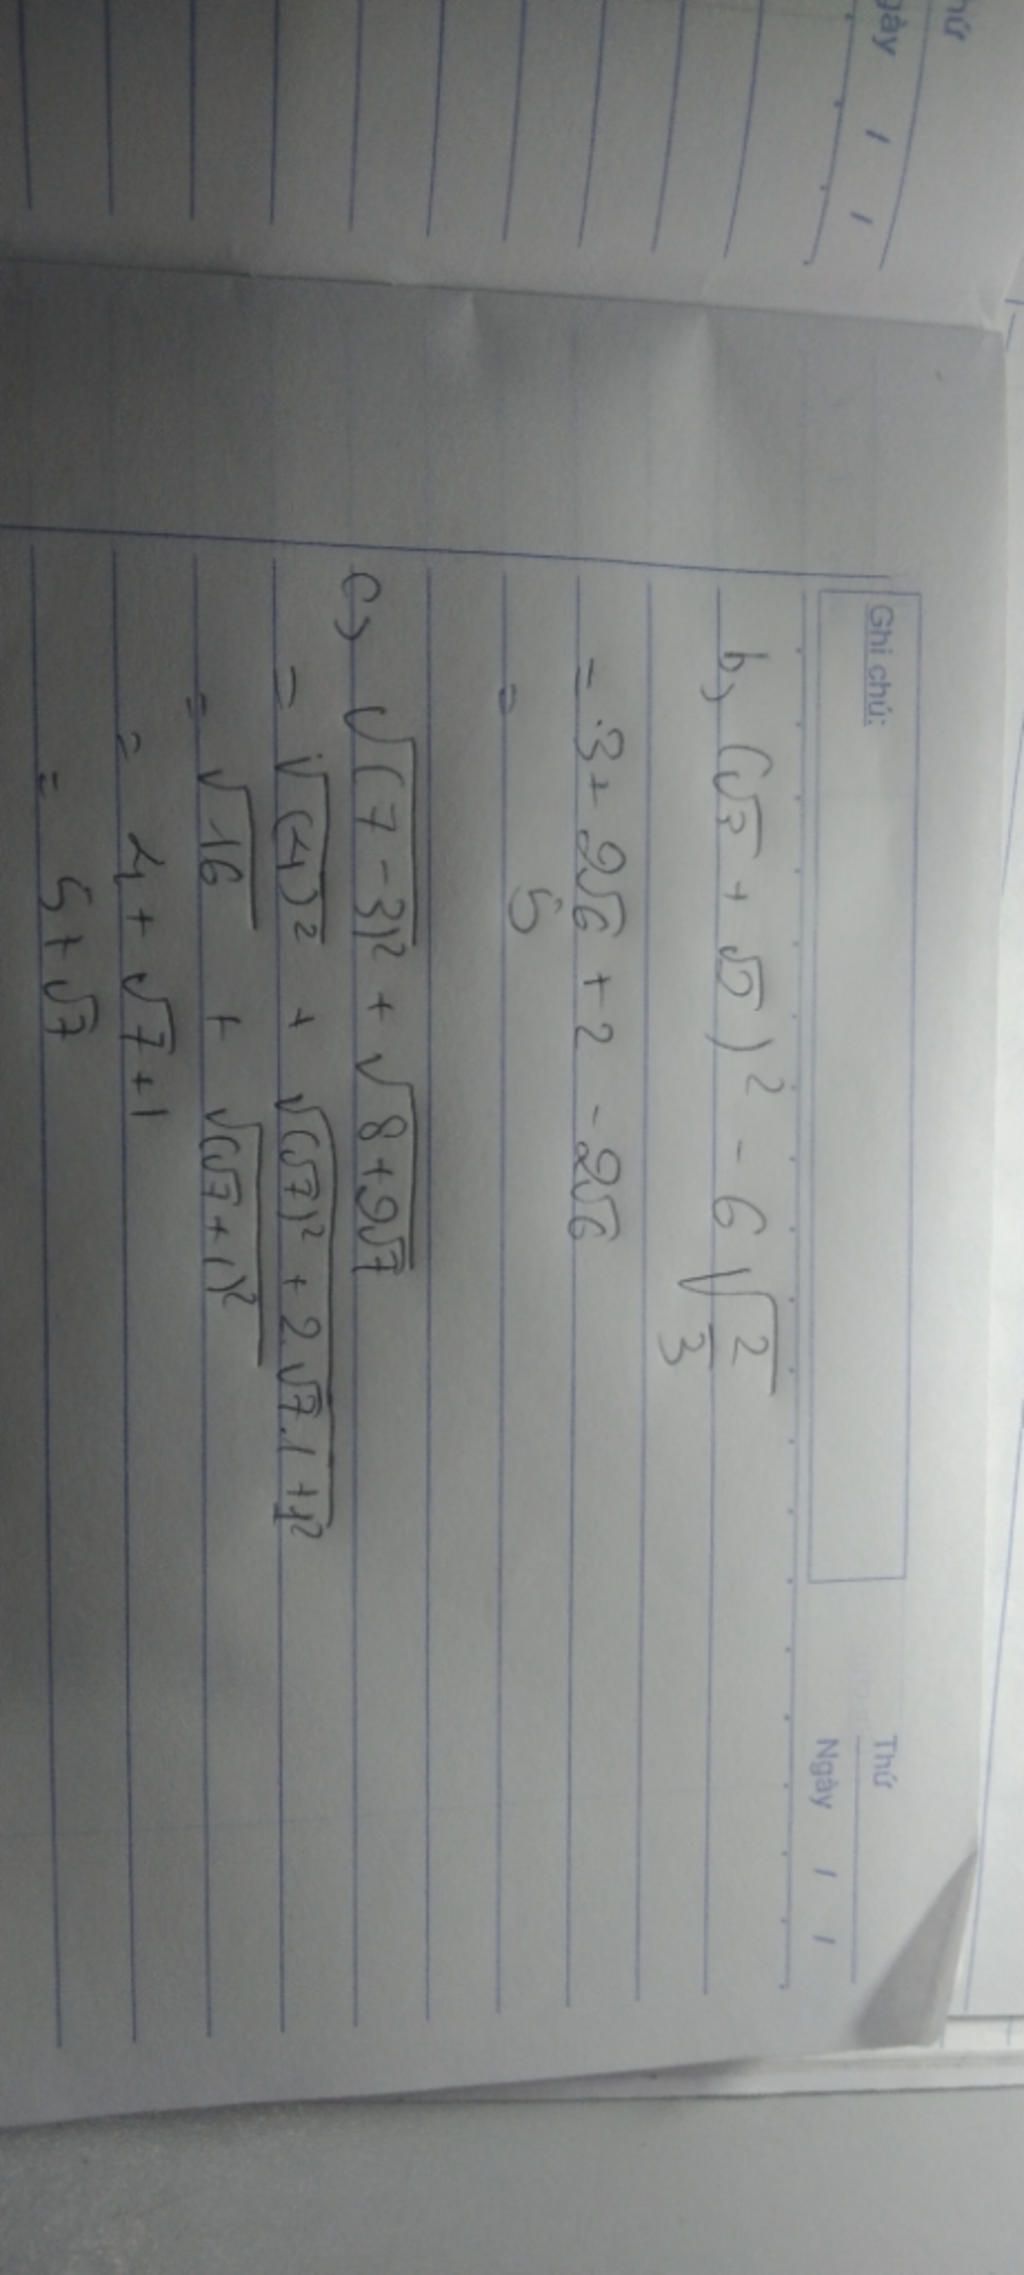 Thứ
Ngày / /
Ghi chú:
b, (√3 + √2)² - 6√(2/3)
= 3 + 2√6 + 2 - 2√6
= 5
c, √(7-3)² + √8+2√7
= √(4)² + √(√7)² + 2√7.1 + 1²
= √16 + √(√7+1)²
= 4 + √7 + 1
= 5 + √7